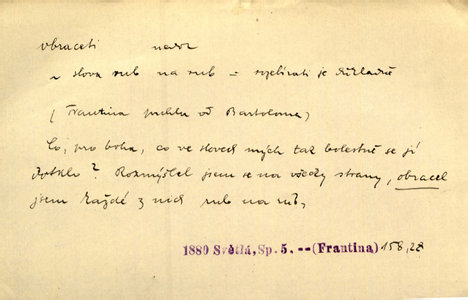 obraceti
~ slova rub na rub = rozebírati je důkladně
(Frantina prchla od Bartoloma)
Co, pro boha, co ve slovech mých tak bolestně se jí
dotklo? Rozmýšlel jsem se na všecky strany, obracel
jsem každé z nich rub na rub,
1880 Světlá, Sp. 5. -- (Frantina) 158,28